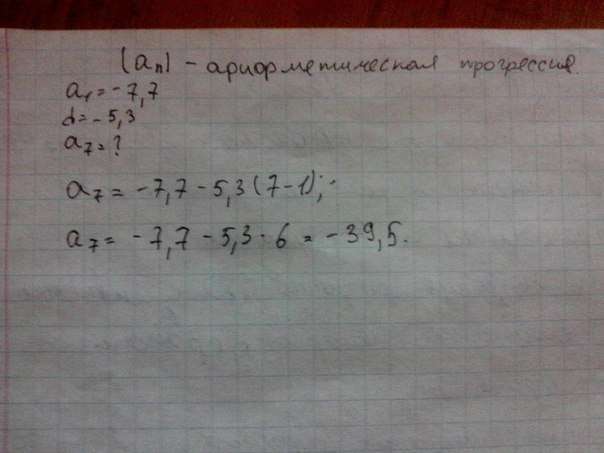 (aₙ) - арифметическая прогрессия.
a₁ = -7,7
d = -5,3
a₇ = ?
a₇ = -7,7 - 5,3 (7-1);
a₇ = -7,7 - 5,3 · 6 = -39,5.